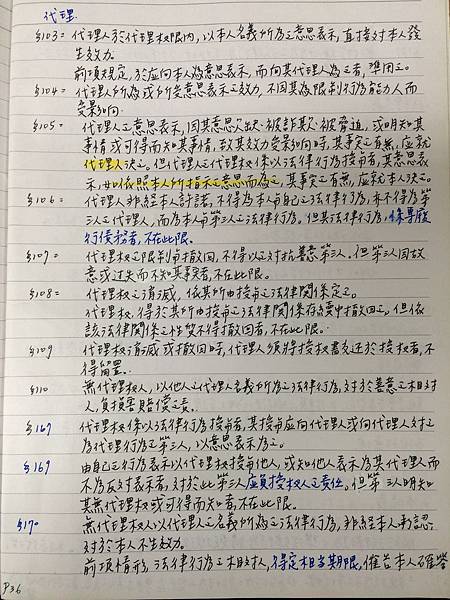 代理
§103= 代理人於代理权限內，以本人名義所為之意思表示，直接对本人發
生效力。
前項規定，於应向本人為意思表示，而向其代理人為之者，準用之。
§104= 代理人所為或所受意思表示之效力，不因其為限制行為能力人而
受影响。
§105= 代理人之意思表示，因其意思欠缺、被詐欺、被脅迫，或明知其
事情或可得而知其事情，致其效力受影响時，其事实之有無，应就
代理人決之。但代理人之代理权係以法律行為授与者，其意思表
示，如依照本人所指示之意思而為之，其事实之有無，应就本人決之。
§106= 代理人非經本人許諾，不得為本人与自己之法律行為，亦不得為第
三人之代理人，而為本人与第三人之法律行為。但其法律行為，係專履
行債務者，不在此限。
§107= 代理权之限制与撤回，不得以之对抗善意第三人。但第三人因故
意或过失而不知其事实者，不在此限。
§108= 代理权之消滅，依其所由授与之法律関係定之。
代理权，得於其所由授与之法律関係存续中撤回之。但依
該法律関係之性質不得撤回者，不在此限。
§109 代理权消滅或撤回時，代理人須將授权書交还於授权者，不
得留置。
§110 無代理权人，以他人之代理人名義所為之法律行為，对於善意之相对
人，負損害賠償之責。
§167 代理权係以法律行為授与者，其授与应向代理人或向代理人对之
為代理行為之第三人，以意思表示為之。
§169 由自己之行為表示以代理权授与他人，或知他人表示為其代理人而
不為反对表示者，对於此第三人应負授权人之責任。但第三人明知
其無代理权或可得而知者，不在此限。
§170 無代理权人以代理人之名義所為之法律行為，非經本人承認
对於本人不生效力。
前項情形，法律行為之相对人，得定相当期限，催告本人確答
P36